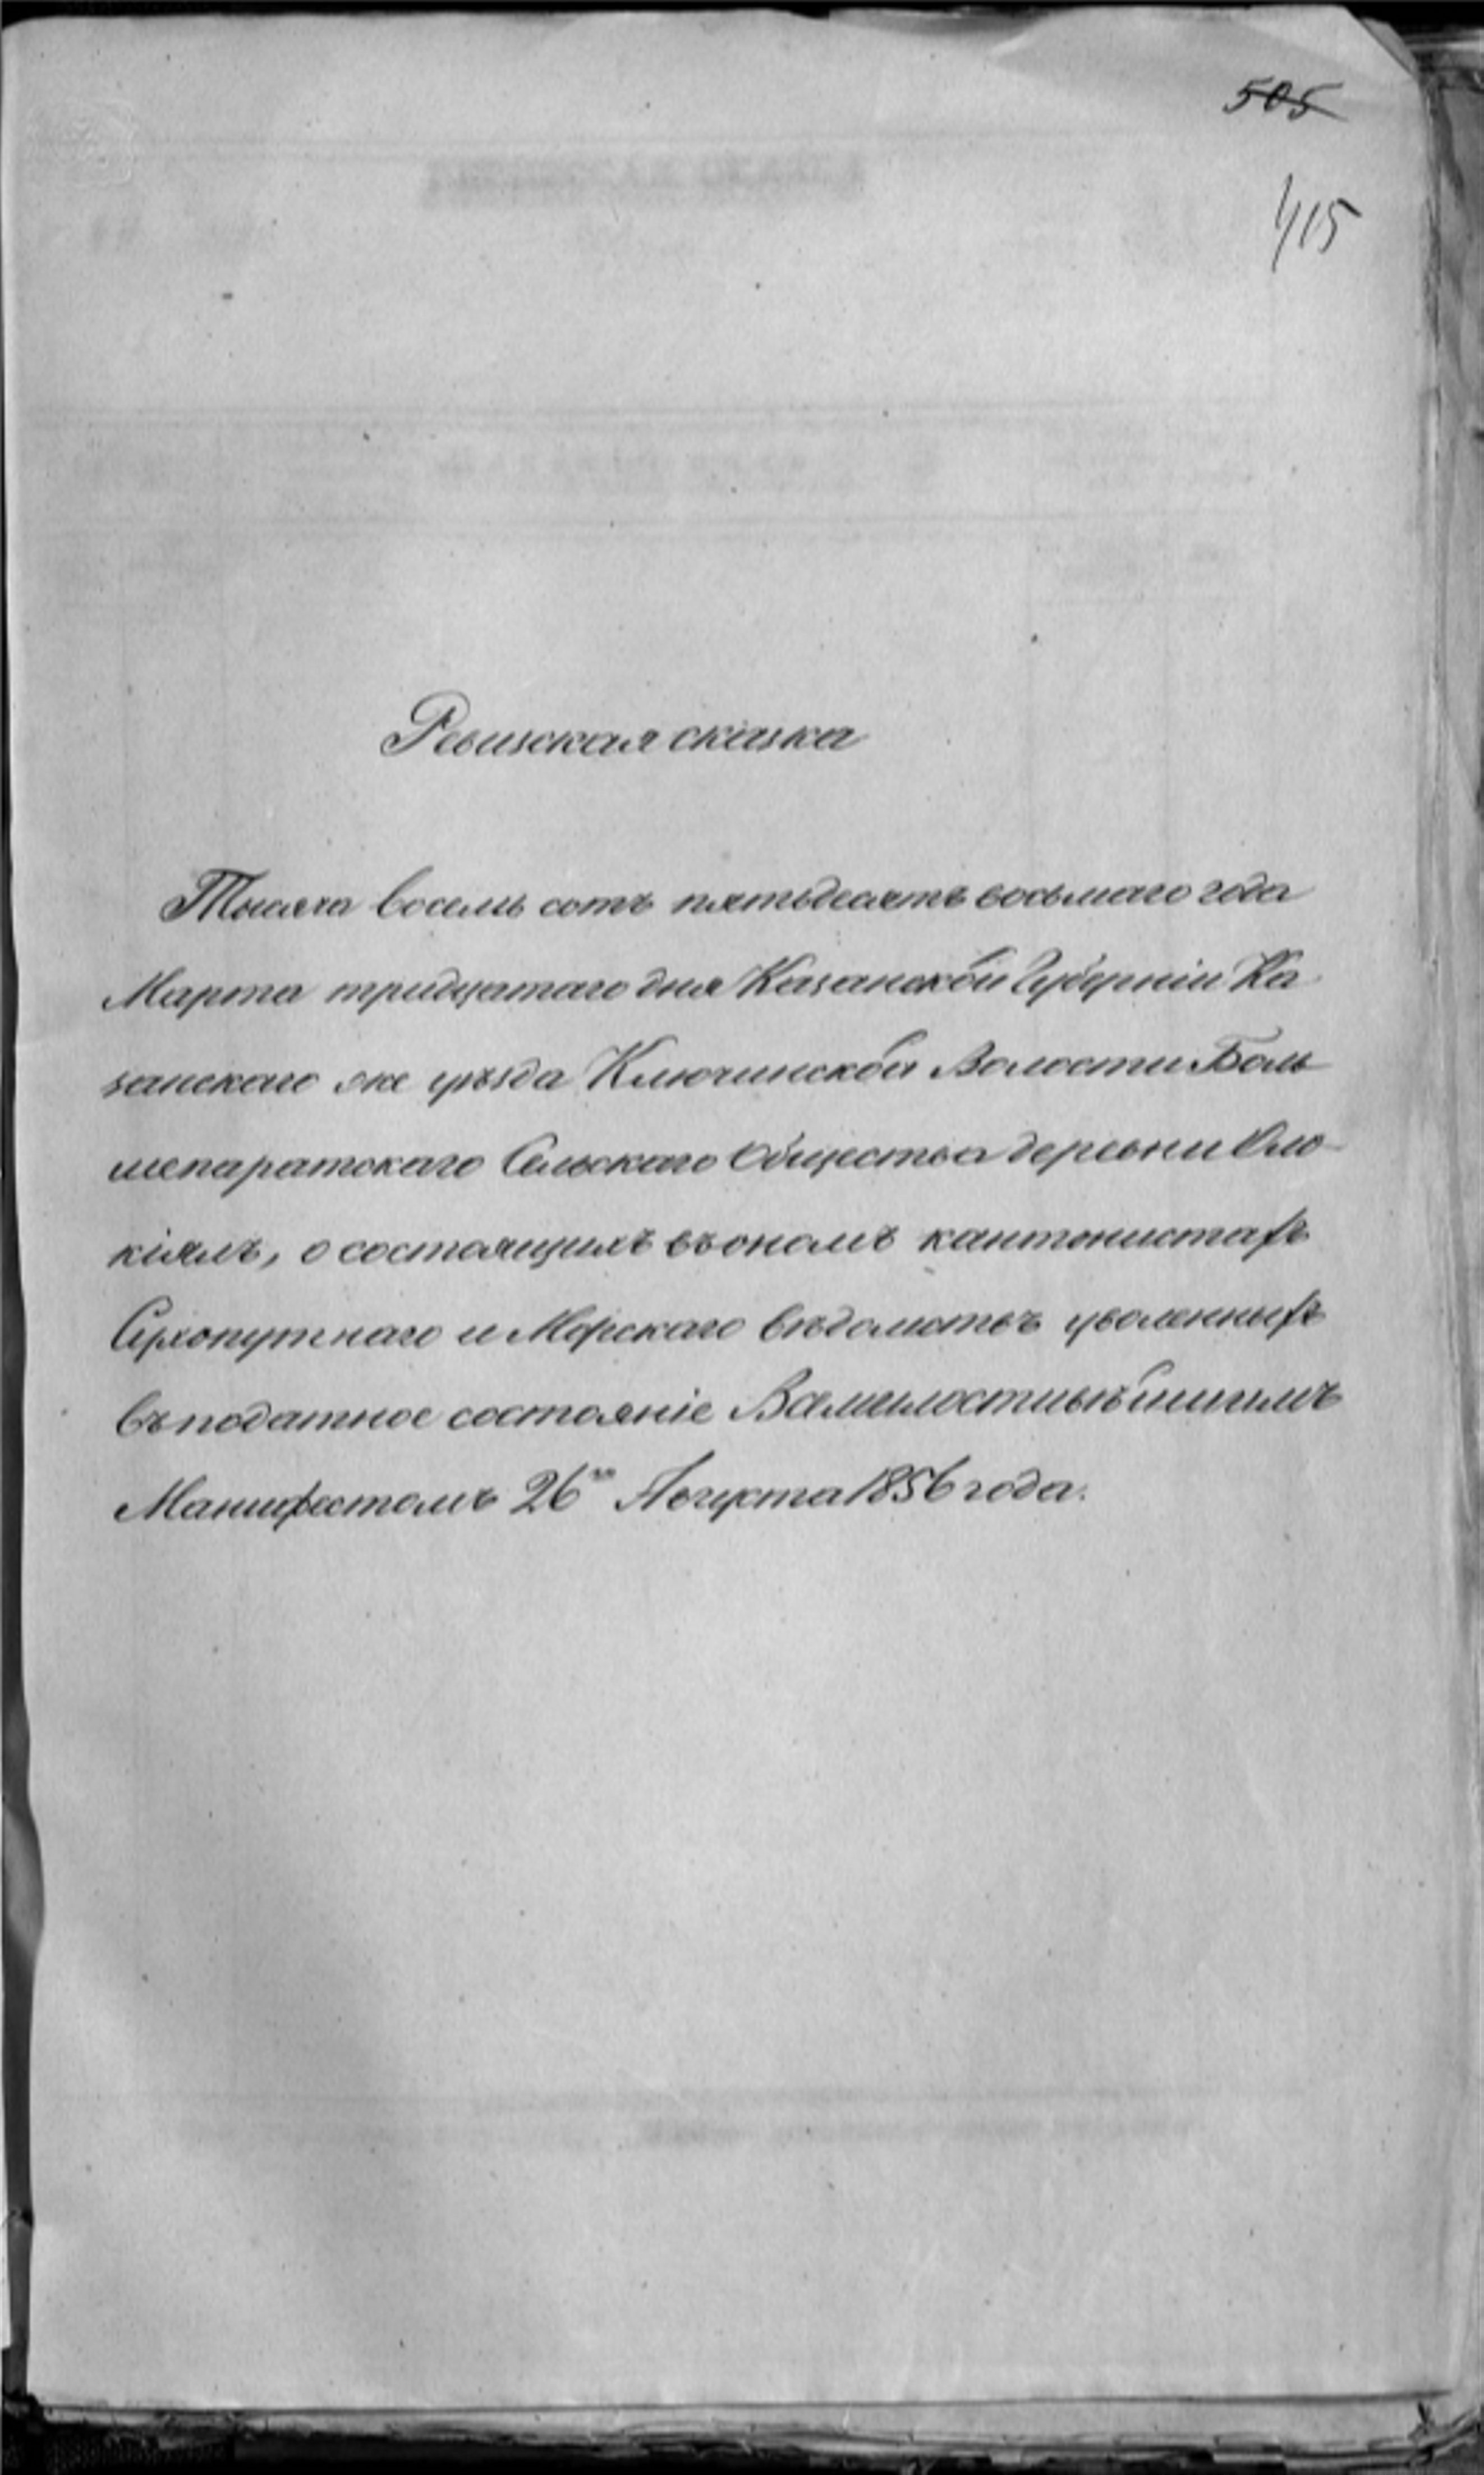 505
415
Ревизская сказка
Тысяча восемь сотъ пятьдесятъ восьмаго года
Марта тридцатаго дня Казанской Губерніи Ка
занскаго же уѣзда Ключинской Волости Боль
шепаратскаго Сельскаго Общества деревни
кіялъ, о состоящихъ въ ономъ кантонистахъ
Сухопутнаго и Морскаго вѣдомствъ уволенныхъ
въ податное состояніе Всемилостивѣйшимъ
Манифестомъ 26го Августа 1856 года.